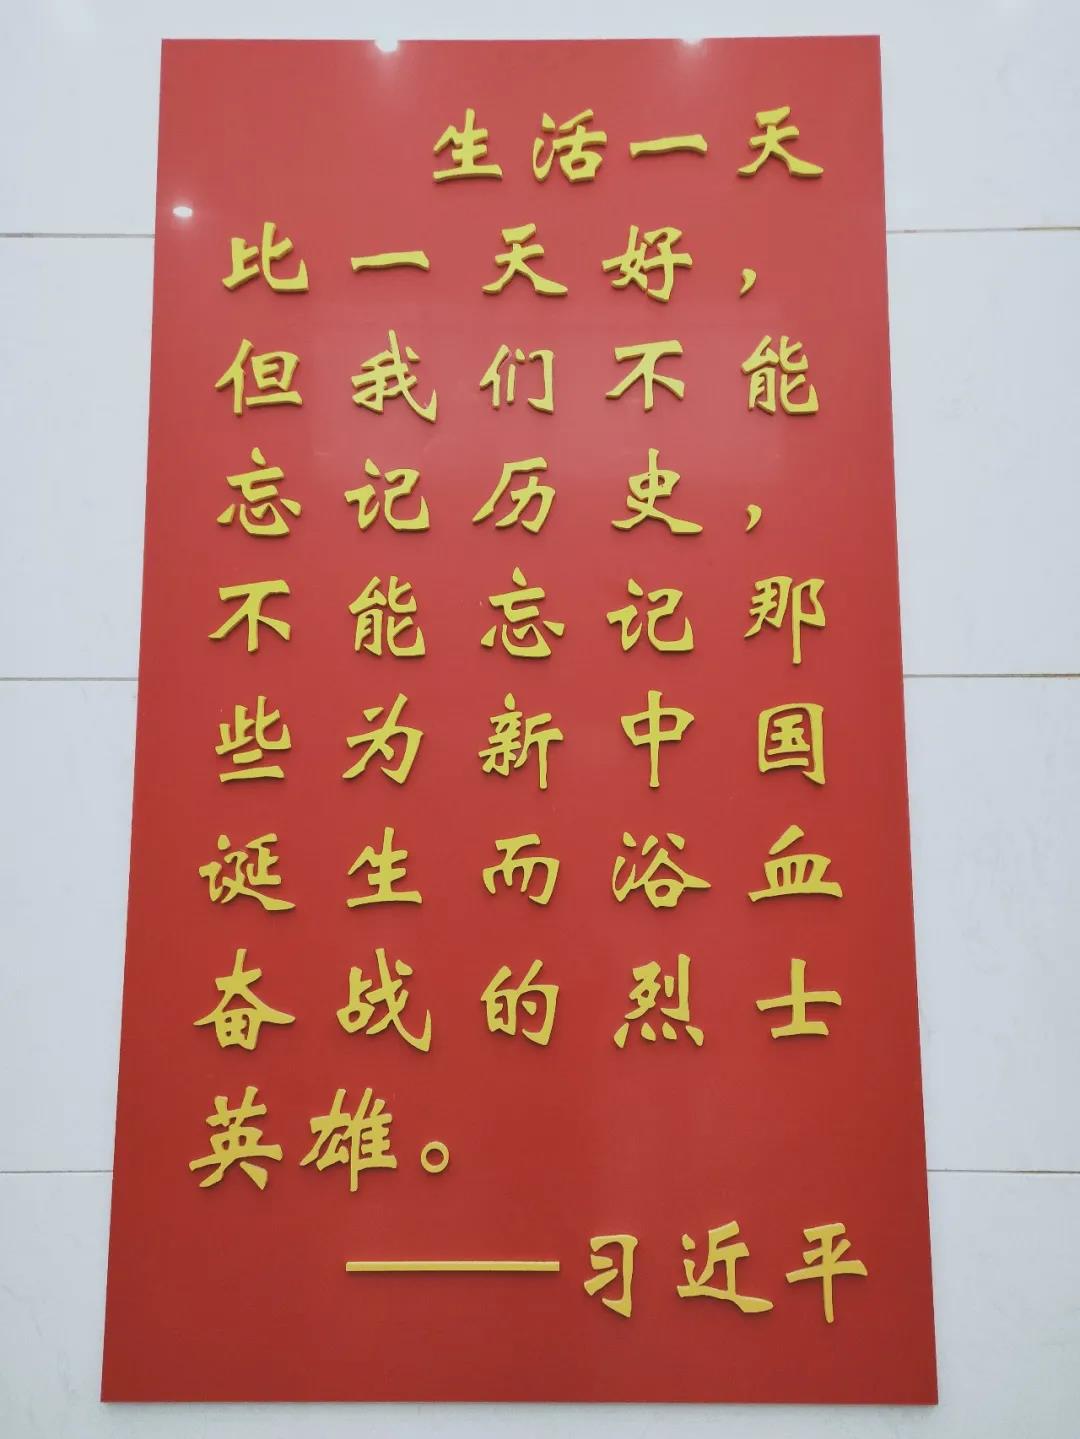 生活一天
比一天好，
但我们不能
忘记历史，
不能忘记那
些为新中国
诞生而浴血
奋战的烈士
英雄。
——习近平